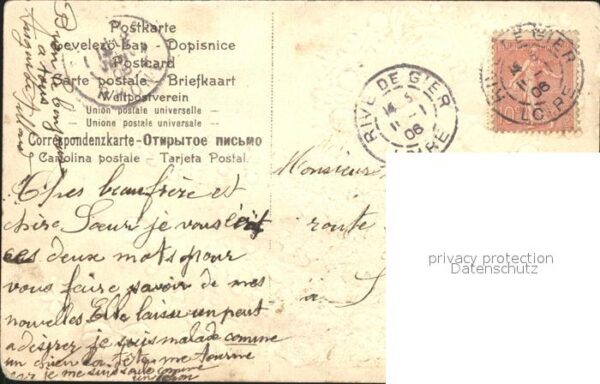 Postkarte
Levelező-Lap - Dopisnice
Postcard
Carte postale - Briefkaart
Weltpostverein
Union postale universelle
Unione postale universale
Correspondenzkarte - Открытое письмо
Cartolina postale - Tarjeta Postal
RIVE DE GIER
14 5
11 - 1
06
LOIRE
RIVE DE GIER
11 - 1
06
LOIRE
Monsieur
route
à S
privacy protection
Datenschutz
Ches beaufrère et
chère Sœur je vous écit
ces deux mots pour
vous faire savoir de mes
nouvelles Elle laisse un peut
a désirez je suis malade comme
un chien la tête me tourne
car je me suis saoule comme
un